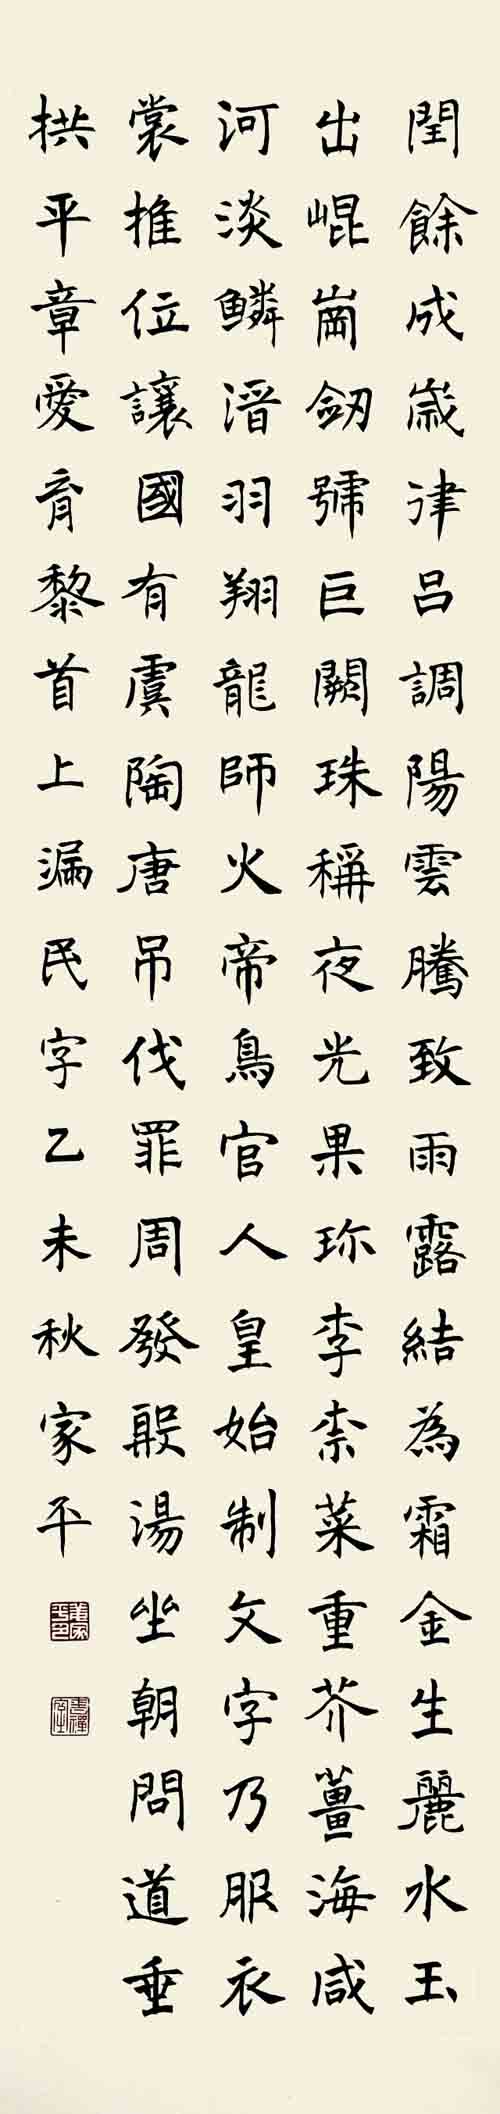 閏餘成歲律呂調陽雲騰致雨露結為霜金生麗水玉
出崐崗劒號巨闕珠稱夜光果珎李柰菜重芥薑海咸
河淡鱗潛羽翔龍師火帝鳥官人皇始制文字乃服衣
裳推位讓國有虞陶唐吊伐罪周發殷湯坐朝問道垂
拱平章愛育黎首上漏民字乙未秋家平